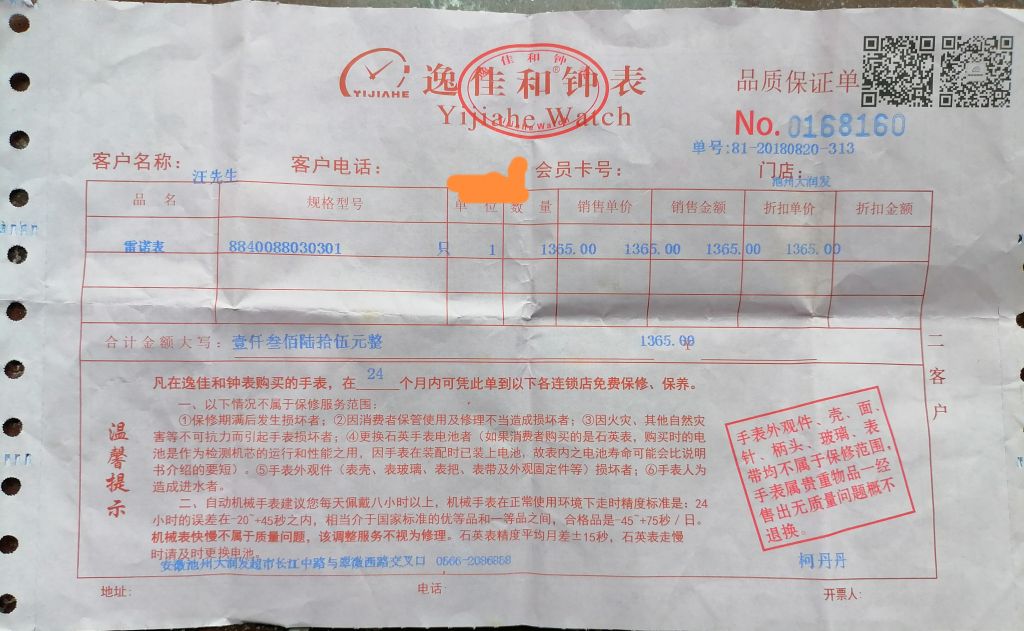 YIJIAHE 逸佳和钟表
Yijiahe Watch
逸佳和钟表
Yijiahe Watch
品质保证单
No. 0168160
单号:81-20180820-313
客户名称: 汪先生 客户电话: 会员卡号: 门店: 池州大润发
品 名 规格型号 单 位 数 量 销售单价 销售金额 折扣单价 折扣金额
雷诺表 8840088030301 只 1 1365.00 1365.00 1365.00 1365.00
合计金额大写: 壹仟叁佰陆拾伍元整 1365.00
二客户
凡在逸佳和钟表购买的手表,在 24 个月内可凭此单到以下各连锁店免费保修、保养。
温馨提示
一、以下情况不属于保修服务范围:
①保修期满后发生损坏者;②因消费者保管使用及修理不当造成损坏者;③因火灾、其他自然灾
害等不可抗力而引起手表损坏者;④更换石英手表电池者(如果消费者购买的是石英表,购买时的电
池是作为检测机芯的运行和性能之用,因手表在装配时已装上电池,故表内之电池寿命可能会比说明
书介绍的要短)。⑤手表外观件(表壳、表玻璃、表把、表带及外观固定件等)损坏者;⑥手表人为
造成进水者。
二、自动机械手表建议您每天佩戴八小时以上,机械手表在正常使用环境下走时精度标准是:24
小时的误差在-20~+45秒之内,相当介于国家标准的优等品和一等品之间,合格品是-45~+75秒/日。
机械表快慢不属于质量问题,该调整服务不视为修理。石英表精度平均月差±15秒,石英表走慢
时请及时更换电池。
手表外观件、壳、面、
针、柄头、玻璃、表
带均不属于保修范围,
手表属贵重物品一经
售出无质量问题概不
退换。
安徽池州大润发超市长江中路与翠微西路交叉口 0566-2096858
柯丹丹
地址: 电话 开票人: